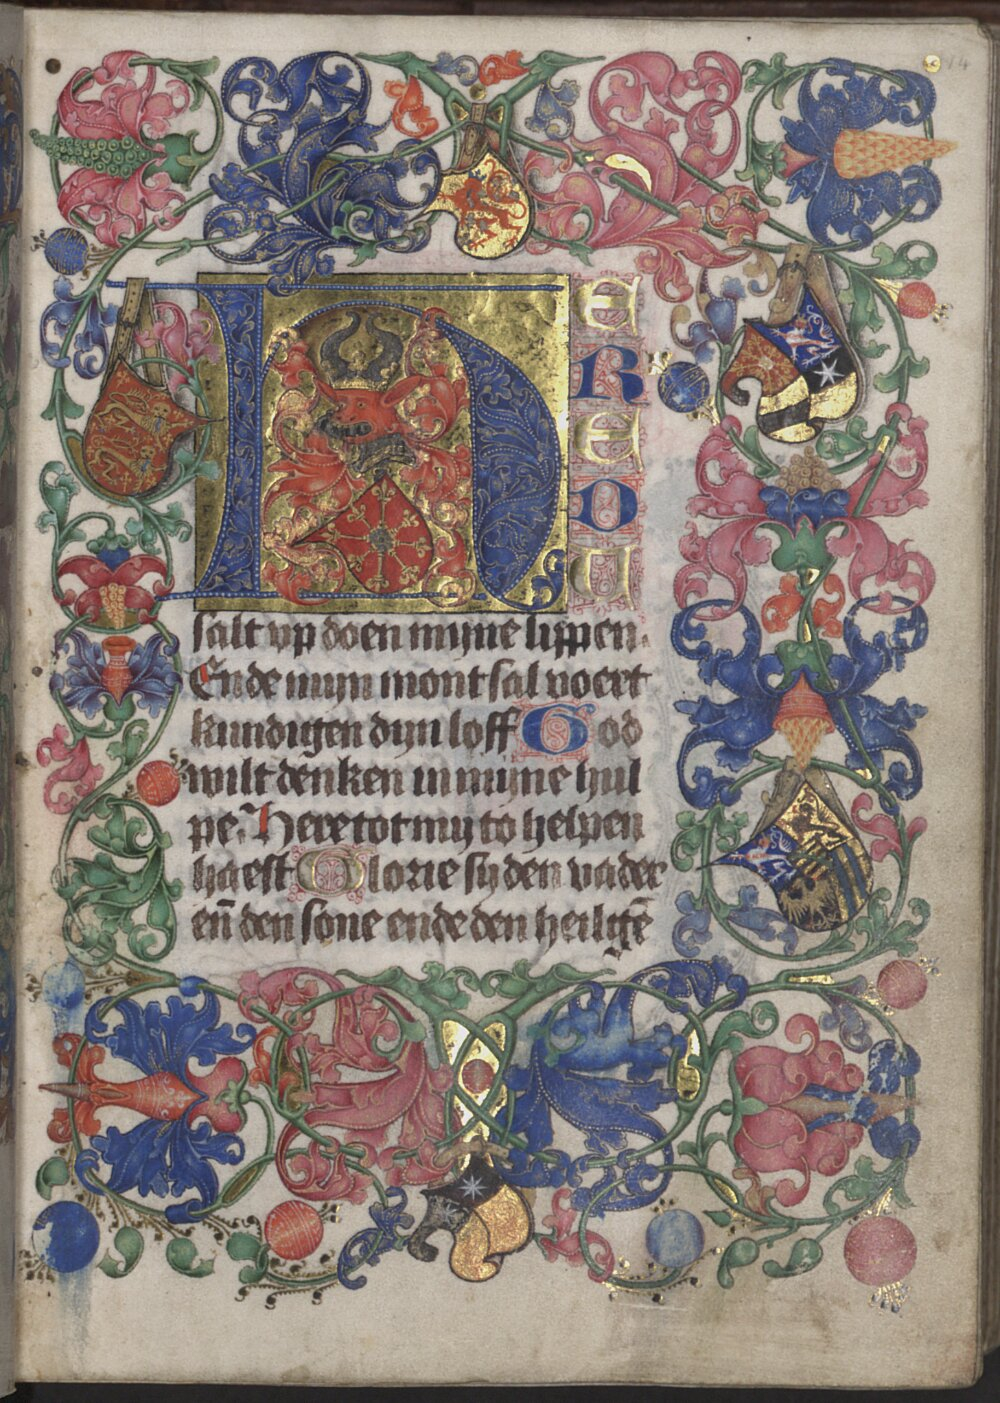 HEREDU
salt vp doen myne lippen.
Ende mijn mont sal voert
kundigen dijn loff God
wilt denken in myne hul
pe. Here tot my to helpen
haest Glorie sy den vader
eñ den sone ende den heilígē